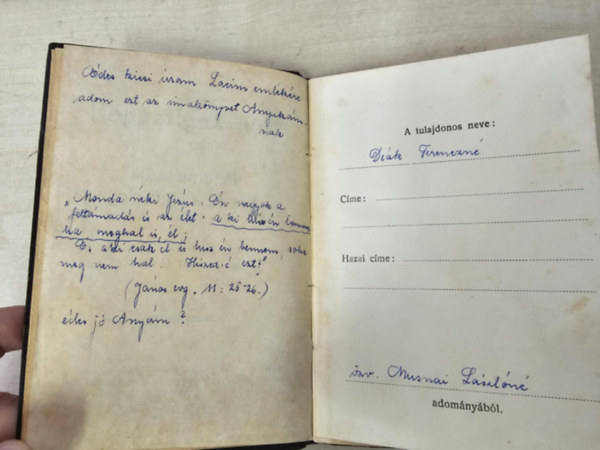 Édes kicsi uram Lacim emlékére
adom ezt az imakönyvet Anyukám-
nak
"Monda néki Jézus: Én vagyok a
feltámadás és az élet: a ki hisz én bennem,
ha meghal is, él;
És a ki csak él és hisz én bennem, soha
meg nem hal. Hiszed-é ezt?"
(János evg. 11: 25-26.)
édes jó Anyám?
A tulajdonos neve:
Deák Ferencné
Címe:
Hazai címe:
özv. Musnai Lászlóné
adományából.